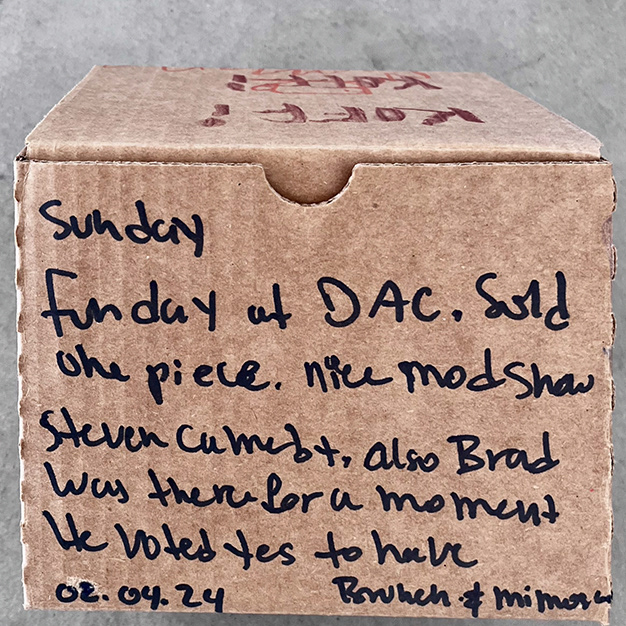 Koff!
Koff!
Sunday
Funday at DAC. Sold
one piece. nice mod show
Steven came by. also Brad
was there for a moment
He voted yes to have
02.04.24 Brunch & mimosa